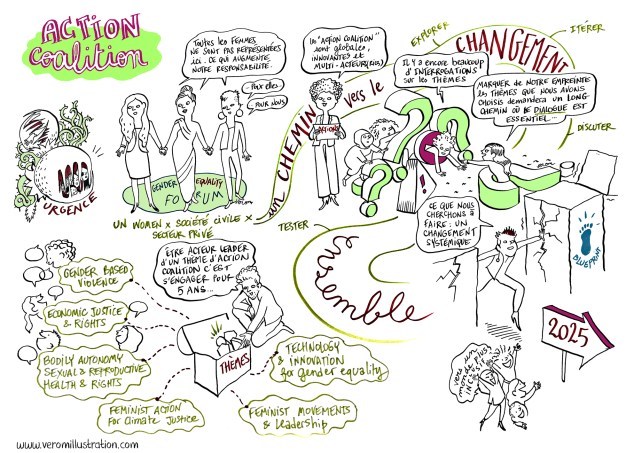 ACTION
Coalition
TOUTES LES FEMMES
NE SONT PAS REPRÉSENTÉES
ICI. CE QUI AUGMENTE
NOTRE RESPONSABILITÉ.
- POUR elles
- POUR NOUS
Les "ACTION COALITION"
sont globales,
INNOVANTES et
MULTI-ACTEUR(ICES)
ACTIONS
EXPLORER
CHANGEMENT
ITÉRER
IL Y a encore beaucoup
d'INTERROGATIONS
sur les THÈMES
MARQUER DE NOTRE EMPREINTE
les THÈMES QUE NOUS AVONS
CHOISIS demandera un LONG
CHEMIN OÙ le DIALOGUE EST
ESSENTIEL...
DISCUTER
un CHEMIN vers le
URGENCE
GENDER EQUALITY
FORUM
UN WOMEN x SOCIÉTÉ CIVILE x
SECTEUR PRIVÉ
TESTER
ensemble
CE QUE NOUS
CHERCHONS À
FAIRE : UN
CHANGEMENT
SYSTÉMIQUE
BLUEPRINT
2025
vers un
monde plus
INCLUSIF
ÊTRE ACTEUR LEADER
D'UN THÈME D'ACTION
COALITION C'EST
S'ENGAGER POUR
5 ANS...
GENDER BASED
VIOLENCE
ECONOMIC JUSTICE
& RIGHTS
BODILY AUTONOMY
SEXUAL & REPRODUCTIVE
HEALTH & RIGHTS
FEMINIST ACTION
For Climate JUSTICE
THÈMES
TECHNOLOGY
& INNOVATION
for gender equality
FEMINIST MOVEMENTS
& Leadership
www.veromillustration.com